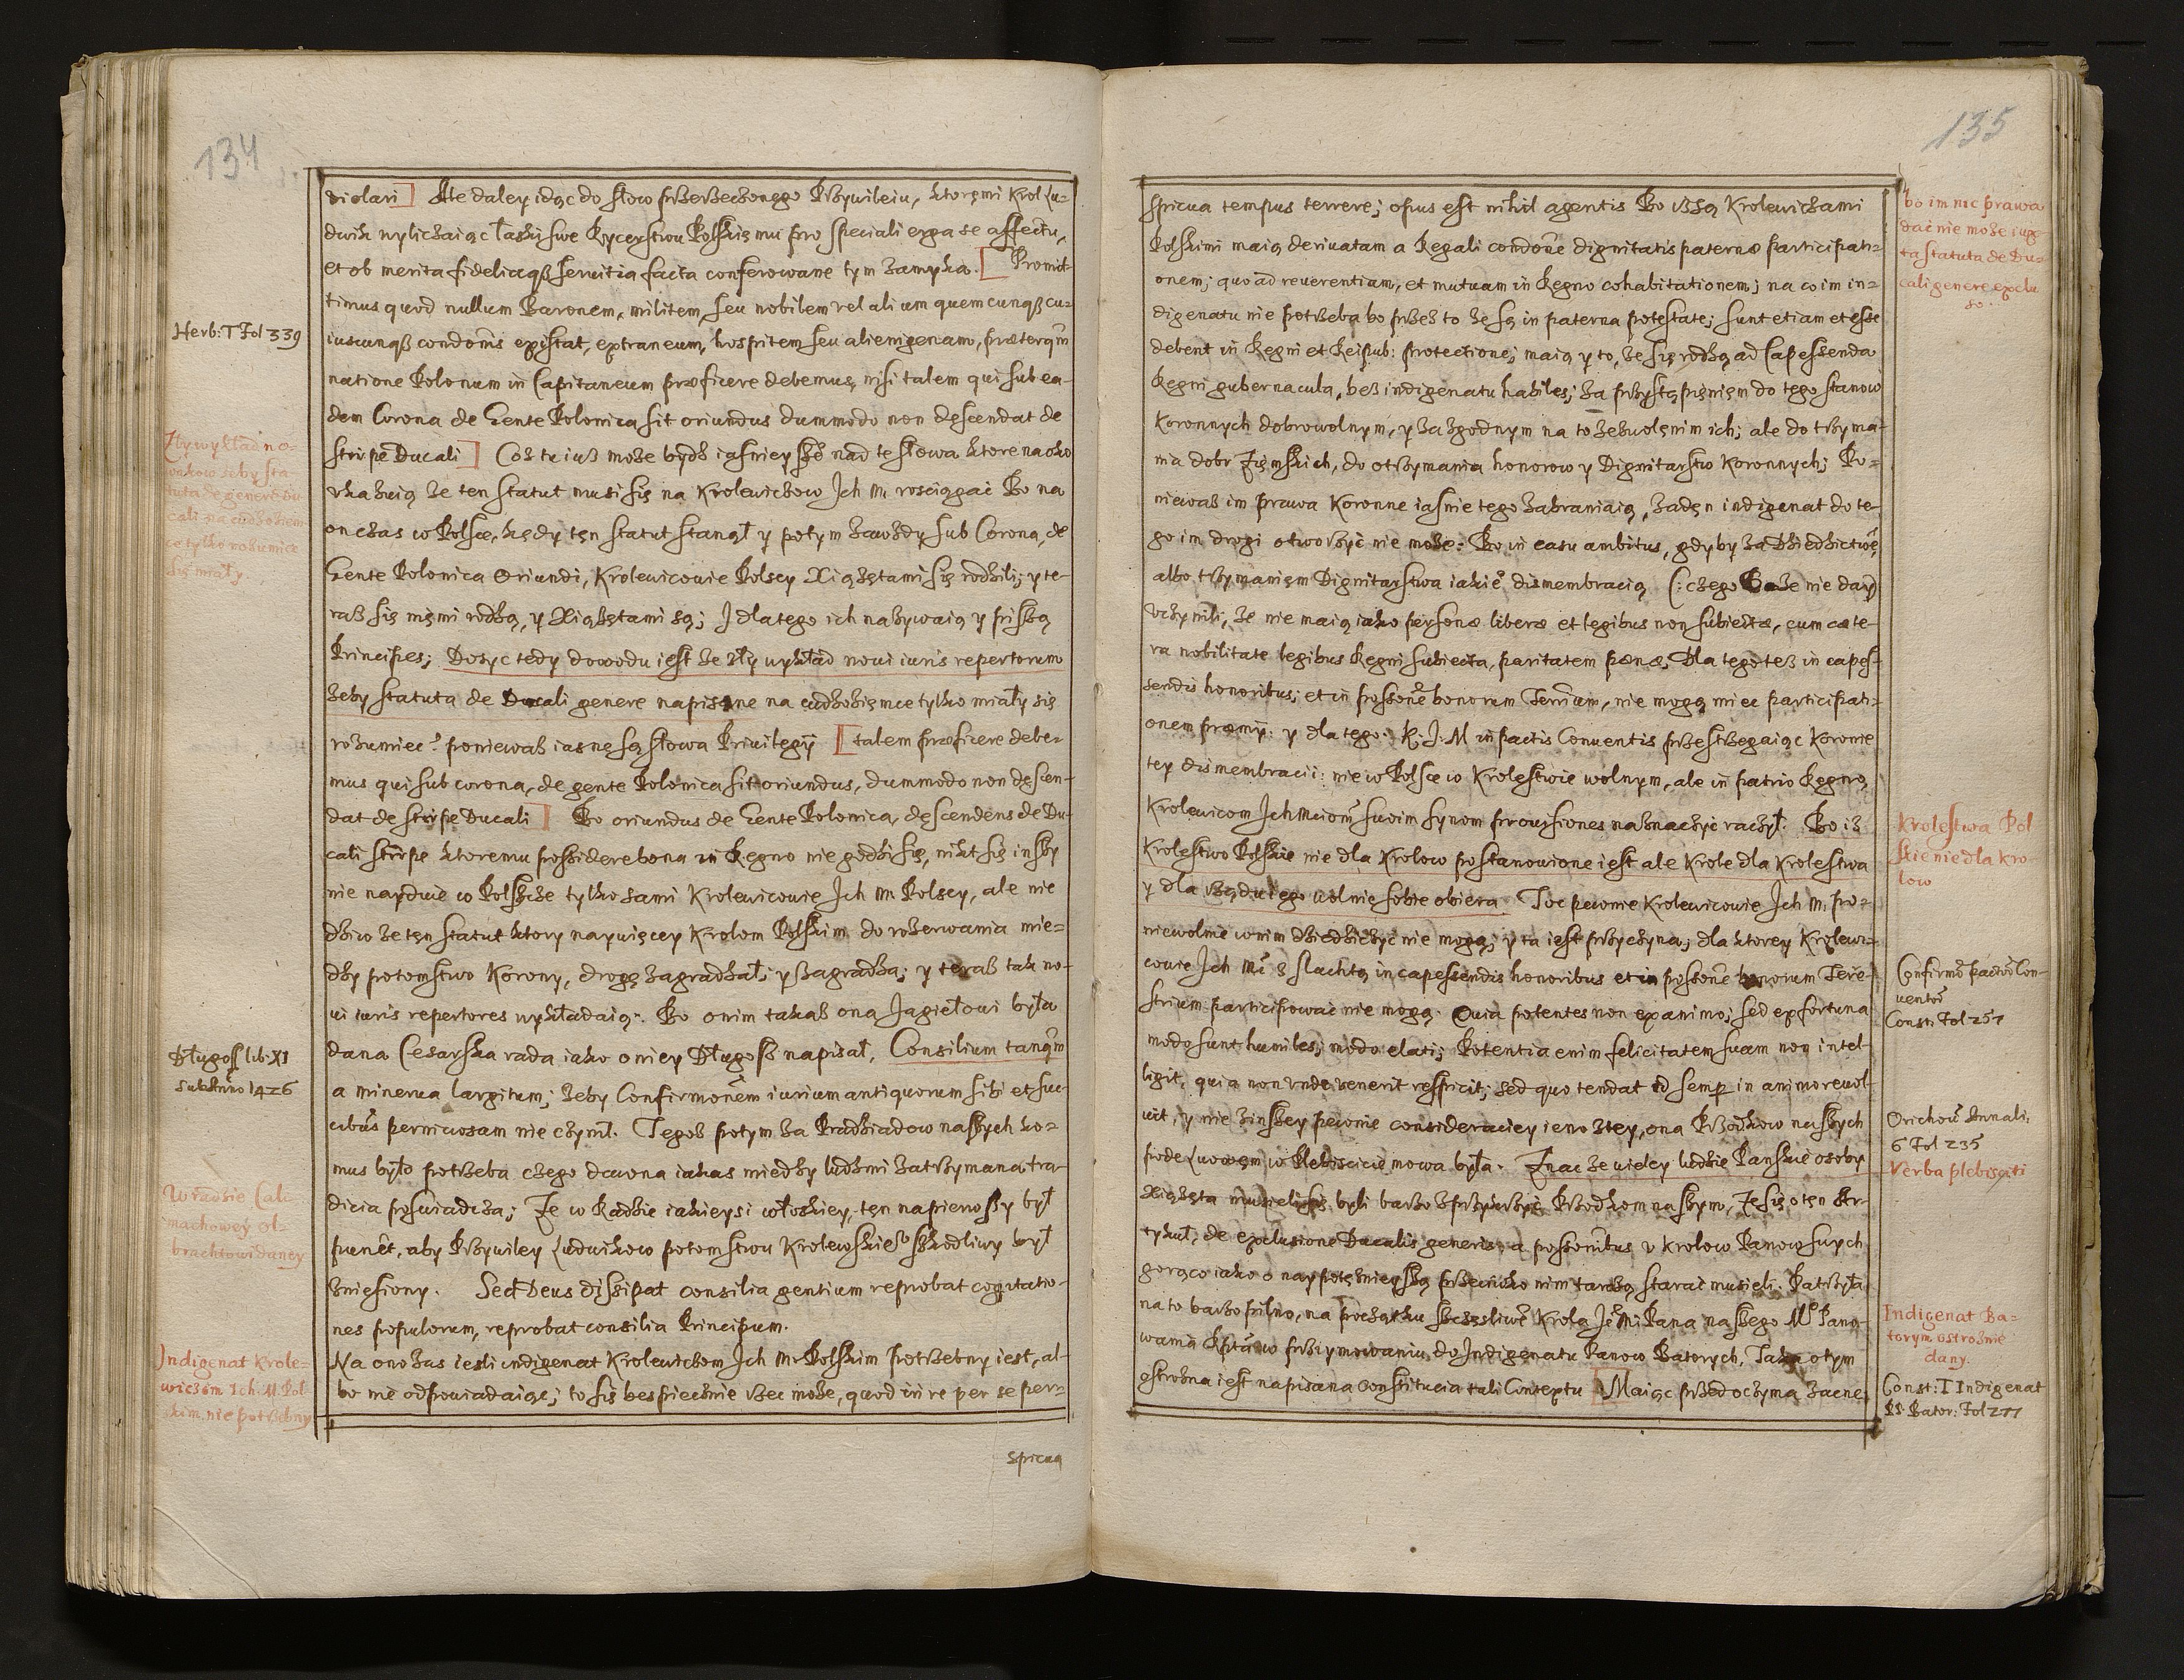 134
violari] Ale daley idąc do słow przerzeczonego Przywileiu, ktoręmi Krol Lu-
dwik wyliczaiąc łaski swe Rycerstwu Polskięmu pro speciali erga se affectu,
et ob merita fideliaqß servitia facta conferowane tym zamyka. [Promit-
timus quod nullum Baronem, militem, seu nobilem vel alium quemcunqß cu-
iuscunqß condonis existat, extraneum, hospitem seu alienigenam, præterqm
natione Polonum in Capitaneum præficere debemus, nisi talem qui sub ea-
dem Corona de Gente Polonica sit oriundus dummodo non descendat de
stirpe Ducali] Coż tu iuß może bydź iasnieyszego nad te słowa ktore na oko
vkazuią że ten statut musi się na Krolewiczow Ich M. rosciągać Bo na
onczas w Polsce, kiedy ten statut stanął y potym zawżdy sub Corona, de
Gente Polonica Oriundi, Krolewicowie Polscy Xiążętami się rodzili; y te-
raß się nięmi rodzą, y Xiążętami są; I dlatego ich nazywaią y piszą
Principes; Dosyc tedy dowodu iest że zły wykład novi iuris repertorum
żeby statuta de Ducali genere napisane na cudzozięmce tylko miały się
rozumiec? poniewaß iasne są słowa Privilegij [talem præficere debe-
mus qui sub corona, de gente Polonica sit oriundus, dummodo non descen-
dat de stirpe Ducali] Bo oriundus de Gente Polonica, descendens de Du-
cali stirpe ktoremu possidere bona in Regno nie godzi się, nikt się inszy
nie naydzie w Polszcze tylko sami Krolewicowie Ich M. Polscy, ale nie
dziw że ten statut ktory naywięcey Krolom Polskim do rozerwania mie-
dzy potomstwo Korony, drogę zagradzał; y zagradza; y teraß tak no-
vi iuris repertores wykładaią. Bo onim takaß ona Jagiełowi była
dana Cesarska rada iako oniey Długosz napisał, Consilium tanqm
a minerva largitum; żeby Confirmonem iurium antiquorum sibi et suc-
cibus perniciosam nie czynił. Tegoß potym za Pradziadow naszych ko-
mus było potrzeba czego dawna iakas miedzy ludzmi zatrzymana tra-
dicia poswiadcza; Że w Radzie iakieysi włoskiey, ten napierwszy był
punct, aby Przywiley Ludwikow potomstwu Krolewskiego szkodliwy był
zniesiony. Sed Deus dissipat consilia gentium reprobat cogitatio-
nes populorum, reprobat consilia Principum.
Na onozas iesli indigenat Krolewiczom Ich M. Polskim potrzebny iest, al-
bo nie odpowiadaiąc; to się bespiecznie rzec może, quod in re per se per-
spicua
Herb: T Fol 339
Zły wykład no-
wakow żeby sta-
tuta de genere Du-
cali na cudzoziem
ce tylko rozumiec
się miały.
Długosz lib. XI
sub Anno 1426
W radzie Cali
machowey Ol-
brachtowi daney
Indigenat Krole-
wiczom Ich M Pol
skim nie potrzebny
135
spicua tempus terrere; opus est nihil agentis Bo vszą Krolewiczami
Polskimi maią derivatam a Regali condone dignitatis paternæ participati-
onem; quo ad reverentiam, et mutuam in Regno cohabitationem; na co im in-
digenatu nie potrzeba bo przez to że są in paterna potestate; sunt etiam et esse
debent in Regni et Reipub: protectione; maią y to, że się rodzą ad Capessenda
Regni gubernacula, bez indigenatu habiles; za przystąpięnięm do tego stanow
Koronnych dobrowolnym, y za zgodnym na to zezwolęnim ich; ale do trzyma-
nia dobr Zięmskich, do otrzymania honorow y Dignitarstw Koronnych; Po-
niewaß im prawa Koronne iasnie tego zabraniaią, żaden indigenat do te-
go im drogi otworzyć nie może. Bo in casu ambitus, gdyby za Dziedzictwe,
albo trzymanięm Dignitarstwa iakie dismembracią (: czego Boże nie day)
vczynili, że nie maią iako personæ liberæ et legibus non subiectæ, cum cæte-
ra nobilitate legibus Regni subiecta, paritatem pænæ, Dla tego teß in capes-
sendis honoribus; et in possone bonorum Terrium, nie mogą miec participati-
onem præmij; y dla tego K. J. M in pactis Conventis przestrzegaiąc Koronie
tey dismembracii: nie w Polsce w Krolestwie wolnym, ale in patrio Regno,
Krolewicom Ich Mciom swoim synom provisiones naznaczyć raczył. Bo iż
Krolestwo Polskie nie dla Krolow postanowione iest ale Krole dla Krolestwa
y dla rządu iego wolnie sobie obiera. Toc pewnie Krolewicowie Ich M. po-
niewolnie w nim dziedziczyć nie mogą; y ta iest przyczyna; dla ktorey Krolewi-
cowie Ich Mci z slachtą in capessendis honoribus et in possone bonorum Terre-
strium participować nie mogą. Quia potentes non ex animo; sed ex fortuna
modo sunt humiles; modo elati; Potentia enim felicitatem suam non intel-
ligit, quia non vnde venerit respicit; sed quo tendat id semper in animo revol-
vit, y nie zinszey pewnie consideraciey ieno ztey, ona Przodkow naszych
pode Lwowęm w Plebiscicie mowa była. Znac że wielcy ludzie Panskie osoby
Xiążęta musieli się byli barzo zprzykrzyć Przodkom naszym, że się o tęn Ar-
tykuł, de exclusione Ducalis generis, a possonibus v krolow Panow swych
gorąco iako o naypotężnieyszą przeciwko nim tarczą starać musieli. Patrzyła
na to barzo pilno, na początku szczęsliwe Krola Je Mi Pana naszego Mo Pano-
wania Rpta w przyimowaniu do Indigenatu Panow Batorych, Taka o tym
ostrożna iest napisana Constitucia tali Contextu [Maiąc przed oczyma zacne
bo im nic prawa
dać nie może iuxta
ta statuta de Du-
cali genere exclu
so.
Krolestwa Pol
skie nie dla kro-
low
Confirmo pactor Con-
ventor
Const: Fol 251
Orichow Annali:
6 Fol 235
Verba plebisciti
Indigenat Ba-
torym ostrożnie
dany.
Const: I Indigenat
PP. Bator: Fol 277